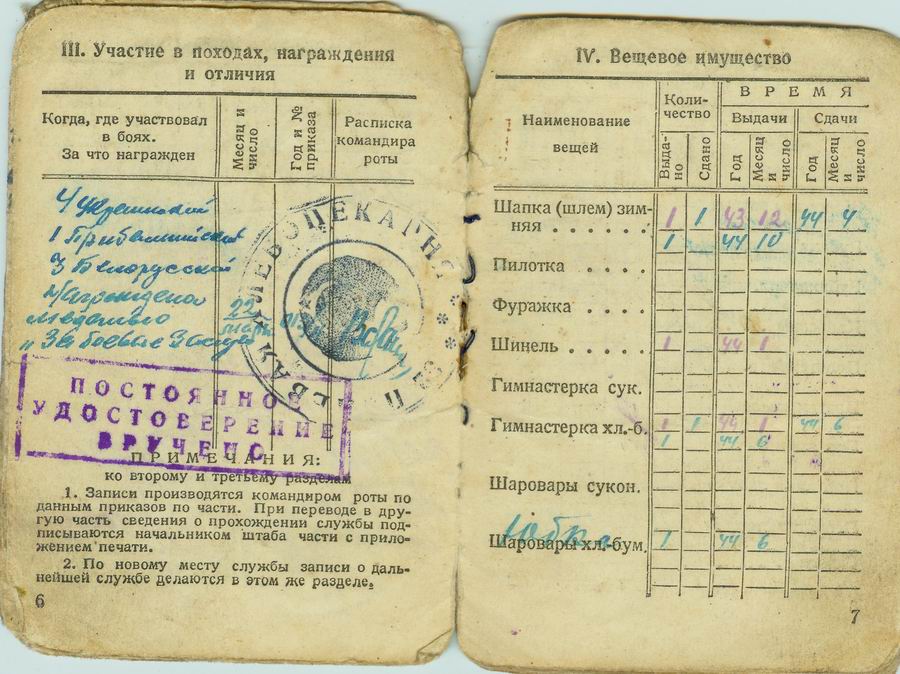 III. Участие в походах, награждения
и отличия
Когда, где участвовал
в боях.
За что награжден
Месяц и
число
Год и №
приказа
Расписка
командира
роты
4 украинский
1 Прибалтийский
3 Белорусский
Награждена
медалью
"За боевые Заслуги
22
ПОЛЕВОЦЕКАРНО
ЕВАЯ
ПОСТОЯННОЕ
УДОСТОВЕРЕНИЕ
ВРУЧЕНО
ПРИМЕЧАНИЯ:
ко второму и третьему разделам
1. Записи производятся командиром роты по
данным приказов по части. При переводе в дру-
гую часть сведения о прохождении службы под-
писываются начальником штаба части с прило-
жением печати.
2. По новому месту службы записи о даль-
нейшей службе делаются в этом же разделе.
6
IV. Вещевое имущество
Наименование
вещей
Коли-
чество
ВРЕМЯ
Выдачи
Сдачи
Выда-
но
Сдано
Год
Месяц
и
число
Год
Месяц
и
число
Шапка (шлем) зим-
няя . . . . . . 1 1 43 12 44 4
1 44 10
Пилотка . . . .
Фуражка . . . .
Шинель . . . . . 1 44 1
Гимнастерка сук.
Гимнастерка хл.-б. 1 1 44 1 44 6
1 44 6
Шаровары сукон.
Юбка
Шаровары хл.-бум. 1 44 6
7